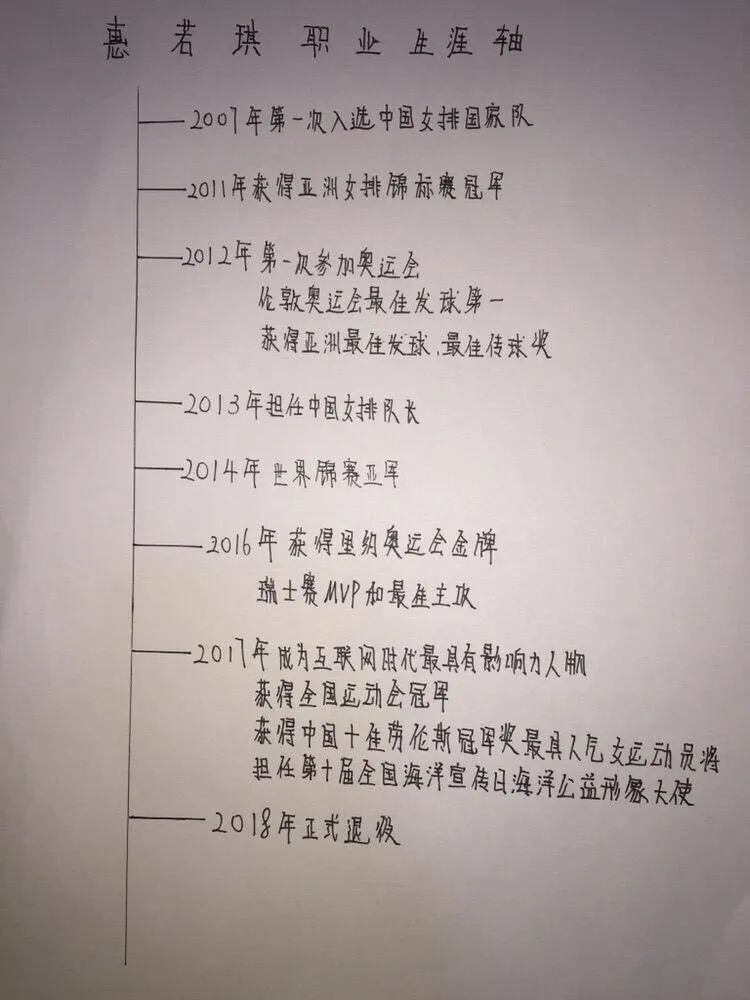 惠若琪职业生涯轴
2007年第一次入选中国女排国家队
2011年获得亚洲女排锦标赛冠军
2012年第一次参加奥运会
伦敦奥运会最佳发球第一
获得亚洲最佳发球、最佳传球奖
2013年担任中国女排队长
2014年世界锦赛亚军
2016年获得里约奥运会金牌
瑞士赛MVP和最佳主攻
2017年成为互联网时代最具有影响力人物
获得全国运动会冠军
获得中国十佳劳伦斯冠军奖最具人气女运动员奖
担任第十届全国海洋宣传日海洋公益形象大使
2018年正式退役